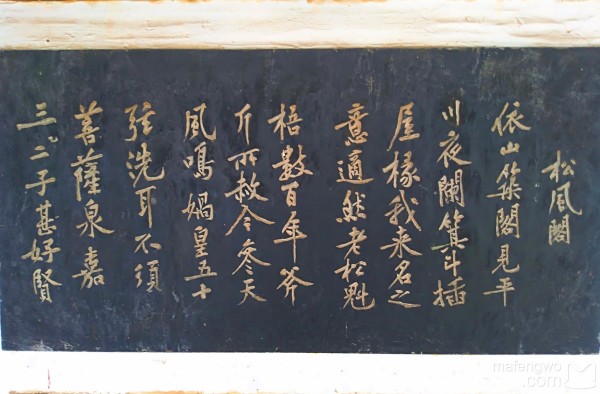 松風閣
依山築閣見平
川夜闌箕斗插
屋椽我来名之
意適然老松魁
梧數百年斧
斤所赦令参天
風鳴媧皇五十
弦洗耳不須
菩薩泉嘉
三二子甚好賢
mafengwo
.com